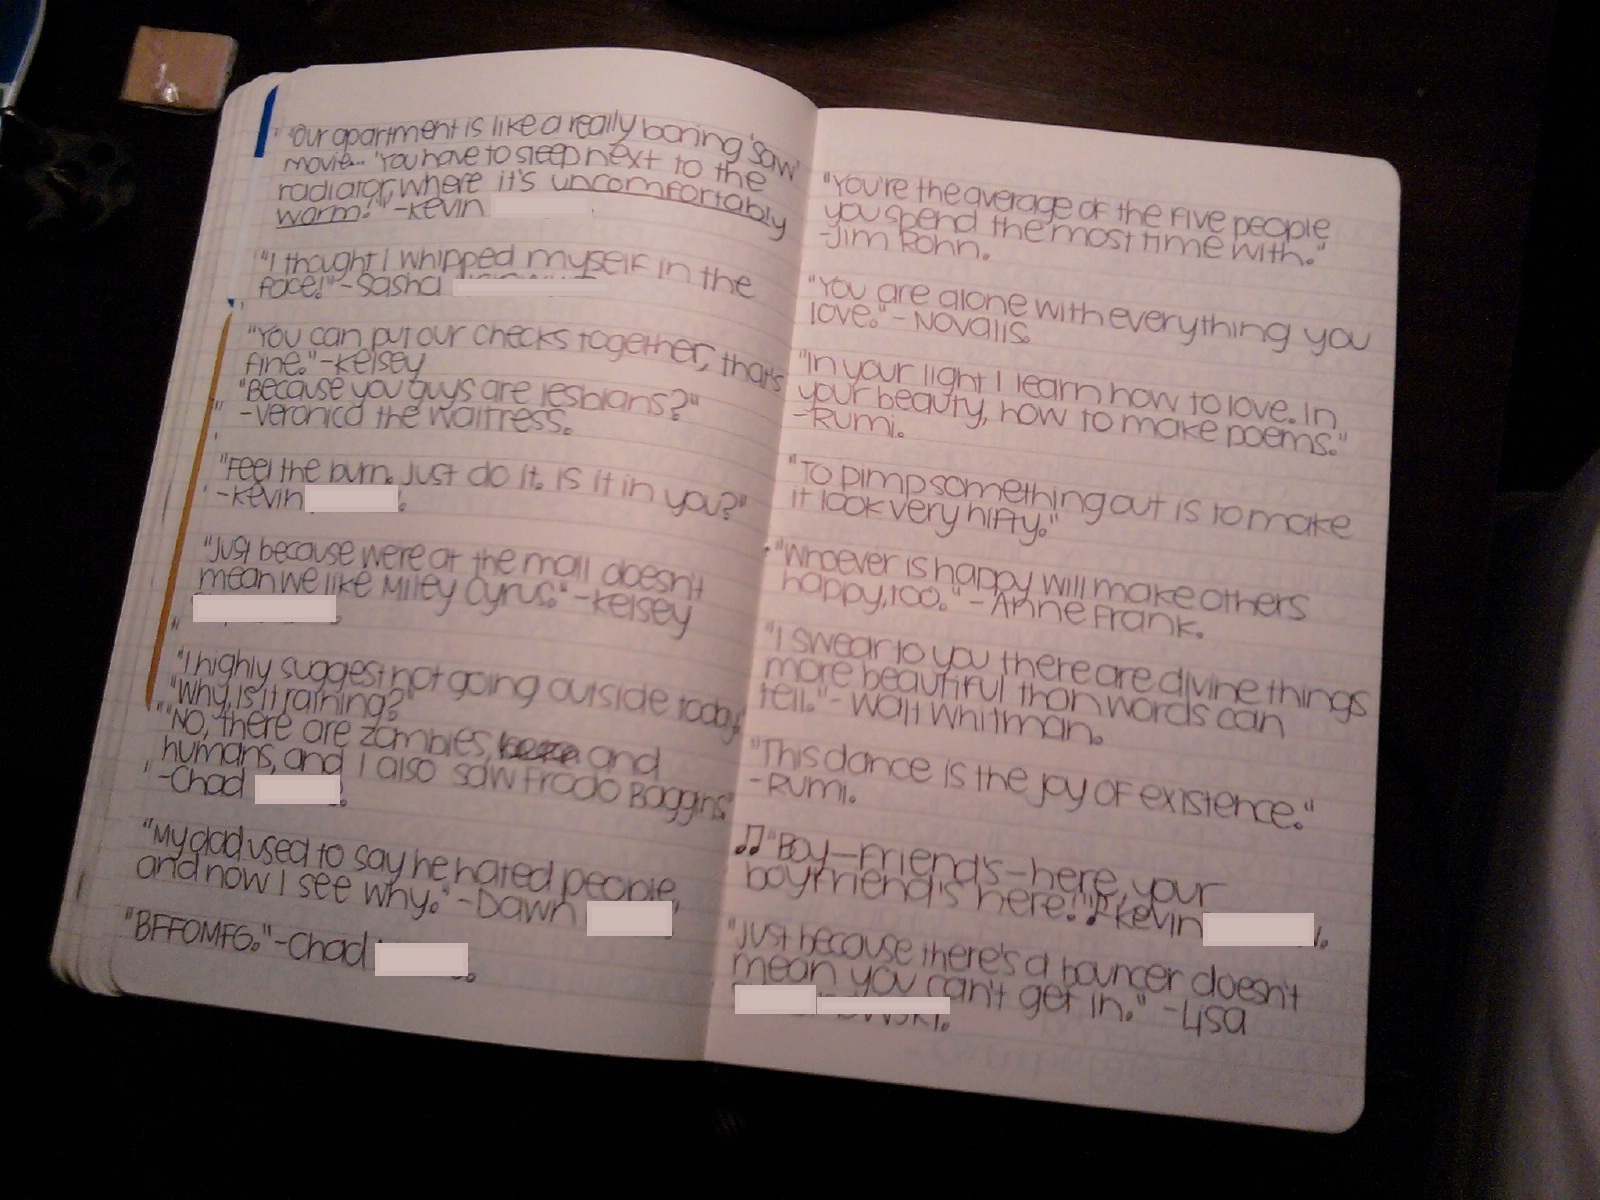 "Our apartment is like a really boring 'Saw'
movie... 'You have to sleep next to the
radiator, where it's uncomfortably
warm!'" -Kevin
"I thought I whipped myself in the
face!" -Sasha
"You can put our checks together, that's
fine." -Kelsey
"Because you guys are lesbians?"
-Veronica the Waitress.
"Feel the burn. Just do it. Is it in you?"
-Kevin
"Just because we're at the mall doesn't
mean we like Miley Cyrus." -Kelsey
"I highly suggest not going outside today."
"Why, is it raining?"
"No, there are zombies, and
humans, and I also saw Frodo Baggins"
-Chad
"My dad used to say he hated people,
and now I see why." -Dawn
"BFFOMFG." -Chad
"You're the average of the five people
you spend the most time with."
-Jim Rohn.
"You are alone with everything you
love." -Novalis.
"In your light I learn how to love. In
your beauty, how to make poems."
-Rumi.
"To pimp something out is to make
it look very nifty."
"Whoever is happy will make others
happy, too." -Anne Frank.
"I swear to you there are divine things
more beautiful than words can
tell." -Walt Whitman.
"This dance is the joy of existence."
-Rumi.
♫ "Boy-friend's-here, your
boyfriend's here!" ♪ -Kevin
"Just because there's a bouncer doesn't
mean you can't get in." -Lisa